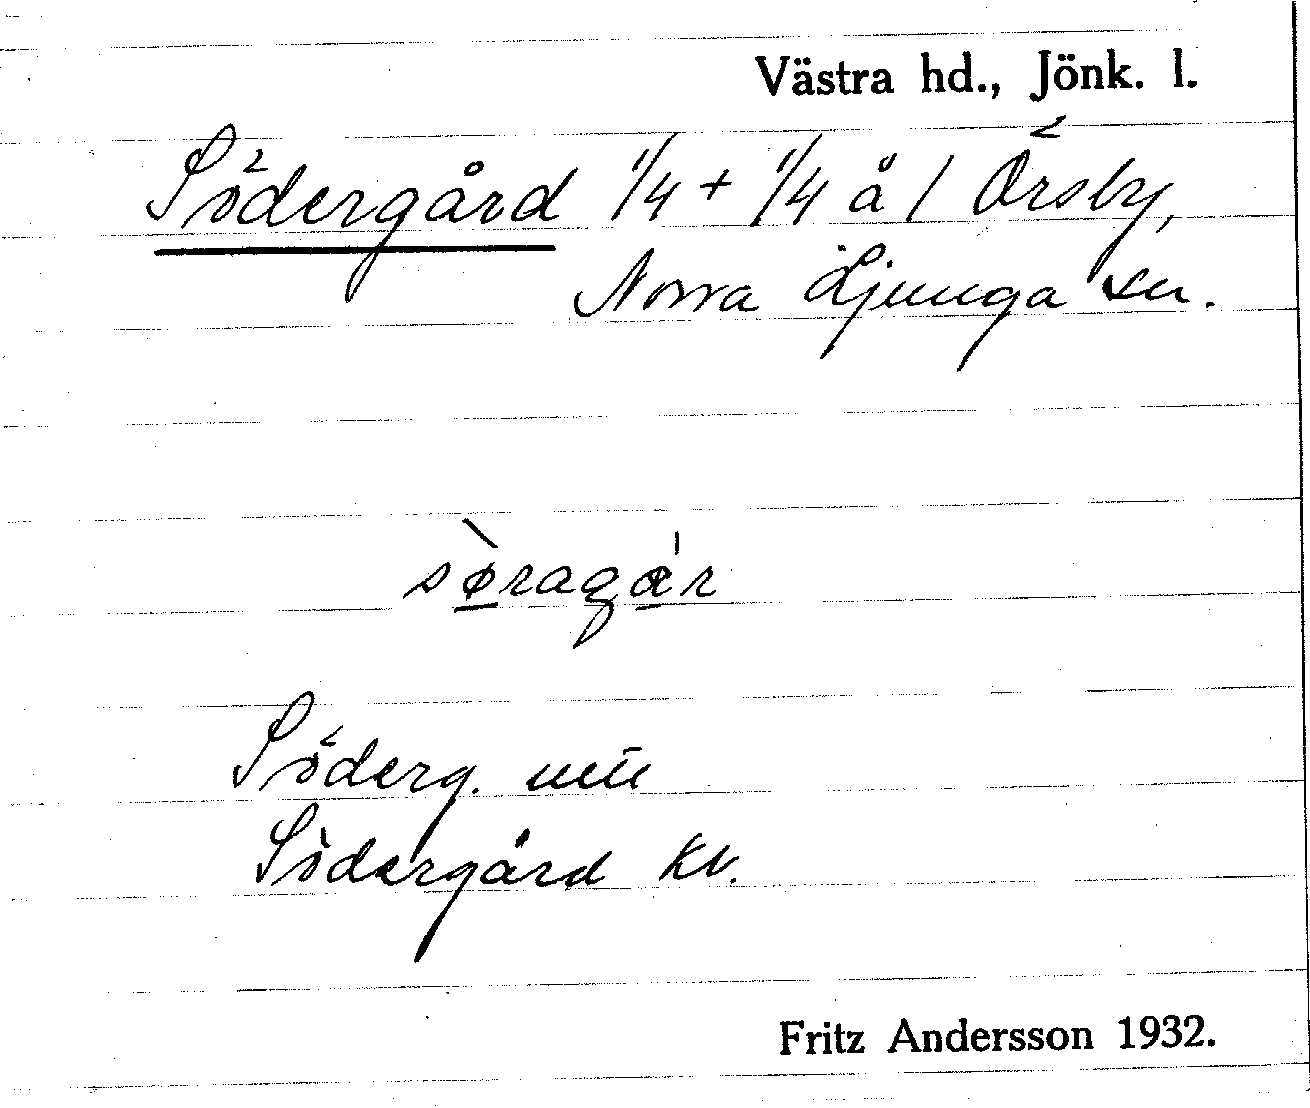 Västra hd., Jönk. l.
Södergård 1/4 + 1/4 å 1 Örsby,
Norra Ljunga sn.
sø̀ragár
Söderg. mtl
Södergård kb.
Fritz Andersson 1932.